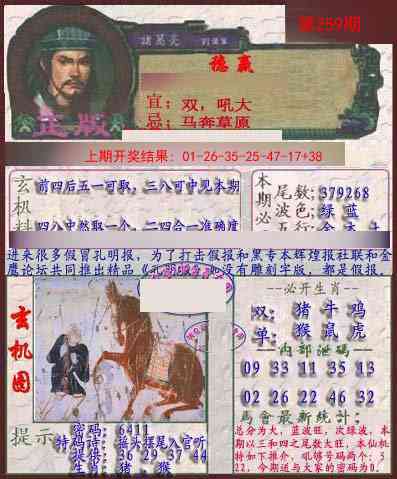 第259期
諸葛亮
德赢
宜：双，吼大
忌：马奔草原
正版
上期开奖结果：01-26-35-25-47-17+38
玄机料
前四后五一可取，三八可中见本期
四八中然取一个，二四合一准确度
本期必
尾数：379268
波色：绿 蓝
五行：金 木 土
进来很多假冒孔明报，为了打击假报和黑专本辉煌报社联和金
鹰论坛共同推出精品《孔明报》如没有雕刻字版，都是假报。
玄机图
--必开生肖--
双：猪 牛 鸡
单：猴 鼠 虎
--内部泄码--
09 33 11 35 13
02 26 22 46 32
馬會最新統計：
总分为大，蓝波旺，次绿波，本
期以三和四之尾数大旺，本仙机
特如下推介，吼够号码两个：3
22，今期送与大家的密码为0。
提示
密码：6411
特码诗：摇头摆尾入官听
提供：36 29 37 44
生肖：猪，猴